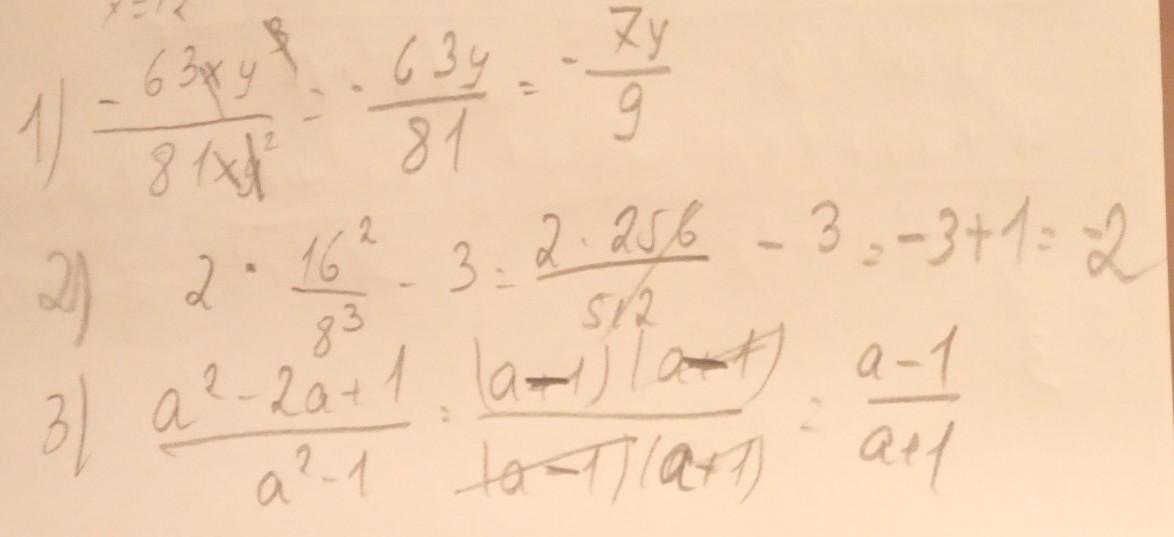 x=12
1) -63xy³/81xy² = -63y/81 = -7y/9
2) 2 · 16²/8³ - 3 = 2·256/512 - 3 = -3+1 = -2
3) a²-2a+1/a²-1 = (a-1)(a-1)/(a-1)(a+1) = a-1/a+1